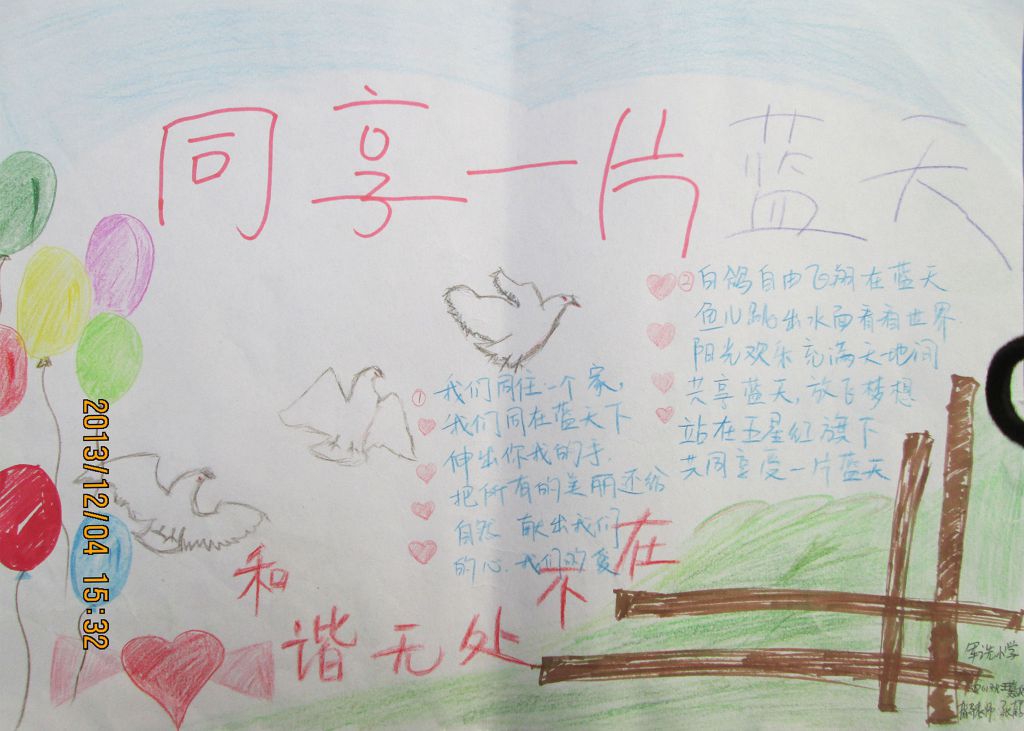 同享一片蓝天
①我们同住一个家,
我们同在蓝天下
伸出你我的手.
把所有的美丽还给
自然 献出我们
的心.我们的爱
②白鸽自由飞翔在蓝天
鱼儿跳出水面看看世界.
阳光欢乐充满天地间
共享蓝天,放飞梦想
站在五星红旗下
共同享受一片蓝天
和谐无处不在
2013/12/04 15:32
小学